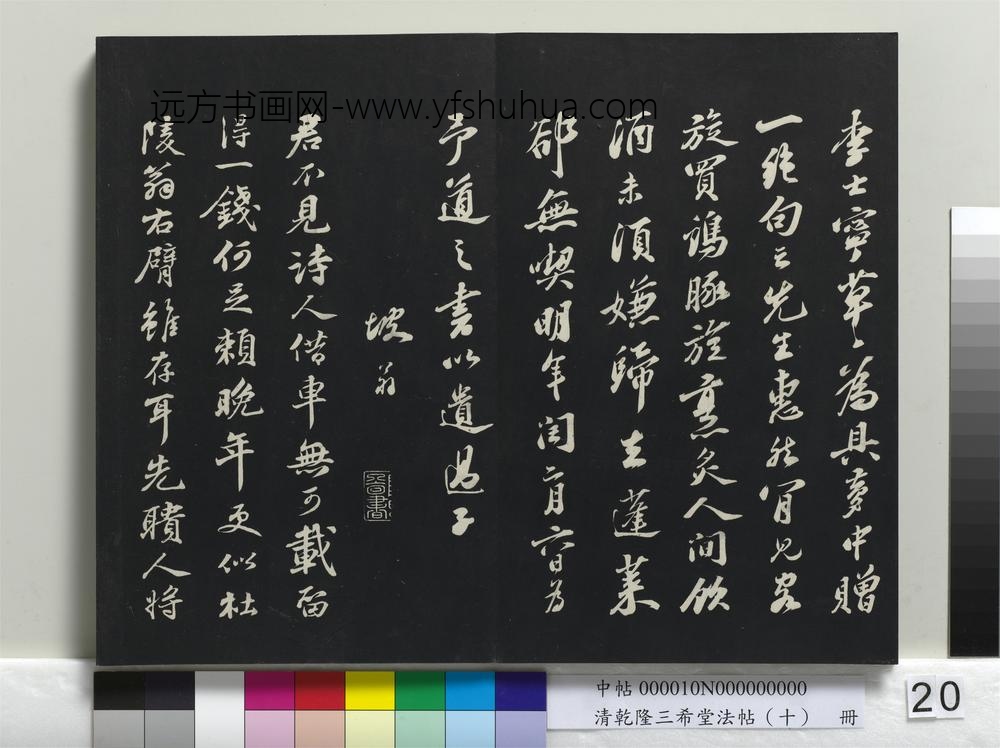 远方书画网-www.yfshuhua.com
李士寧草草為具夢中贈
一絕句云先生惠然肯見客
旋買鷄豚旋烹炙人間飲
酒未須嫌歸去蓬萊
卻無喫明年閏二月六日為
予道之書以遺過子
坡翁
君不見詩人借車無可載留
得一錢何足賴晚年更似杜
陵翁右臂雖存耳先聵人將
中帖 000010N000000000
清乾隆三希堂法帖（十） 冊
20